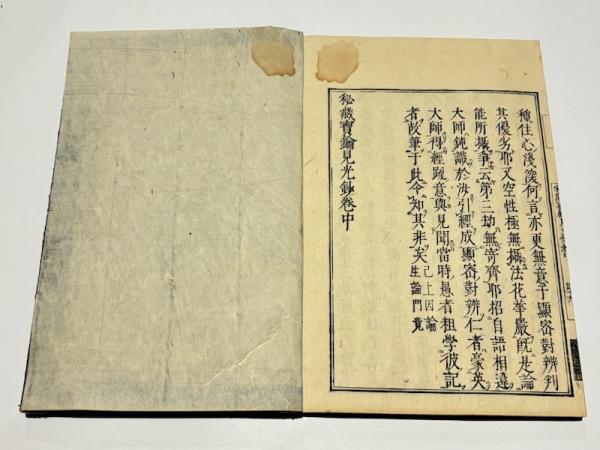 種住心淺深何言亦更無意于顯密對辨判
其優劣耶又空性極無攝法花華嚴既是論
能所攝爭云第三劫無寄齊耶招自語相違
大師鈍識於汝引經成顯密對辨仁者豪英
大師得經疏意與見聞當時愚者粗學彼記
者故筆于此令知其非矣
已上因論
生論門竟
秘藏寶鑰見光鈔卷中